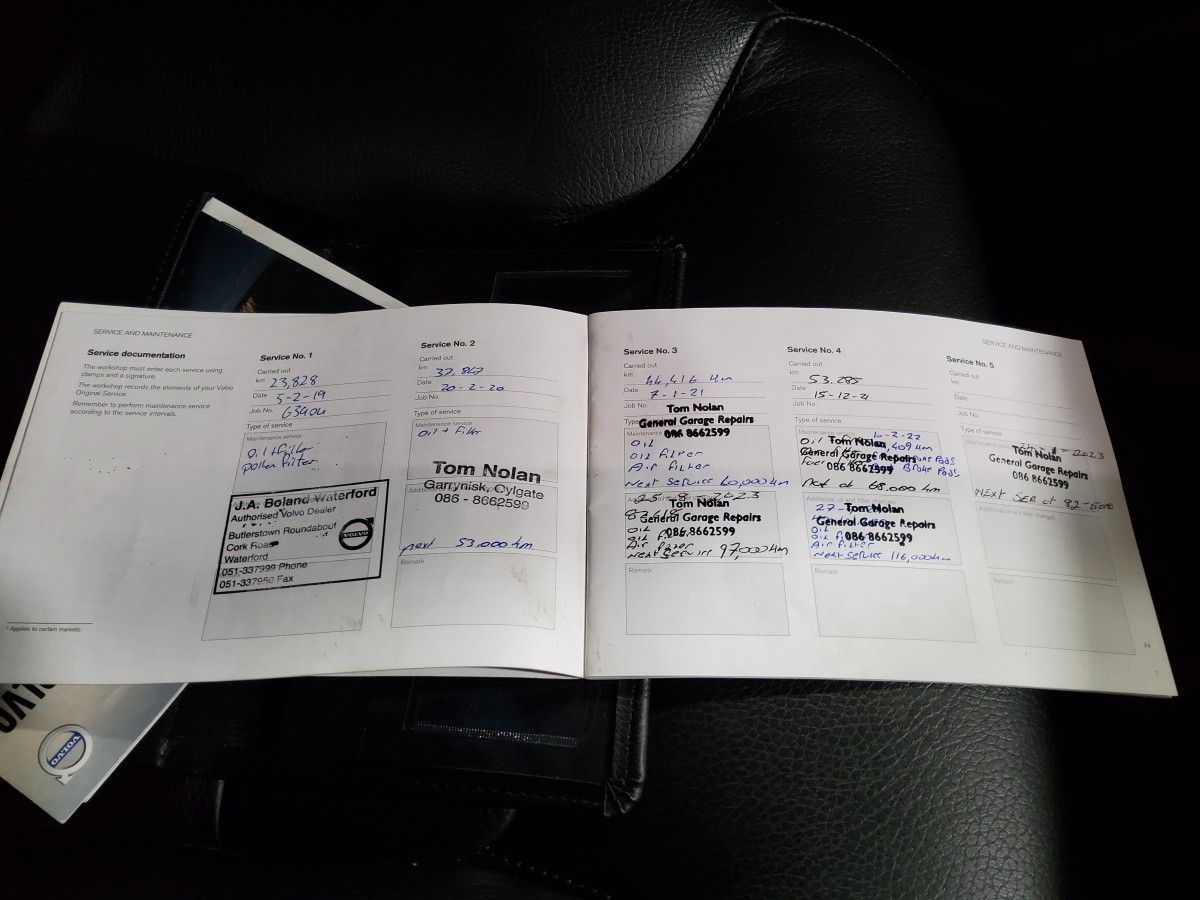 SERVICE AND MAINTENANCE
Service documentation
The workshop must enter each service using
stamps and a signature.
The workshop records the elements of your Volvo
Original Service.
Remember to perform maintenance service
according to the service intervals.
* Applies to certain markets.
Service No. 1
Carried out
km 23,828
Date 5-2-19
Job No. 63404
Type of service
Maintenance service
Oil + filter
pollen filter
J.A. Boland Waterford
Authorised Volvo Dealer
Butlerstown Roundabout
Cork Road
Waterford
051-337999 Phone
051-337950 Fax
VOLVO
Service No. 2
Carried out
km 37.847
Date 20-2-20
Job No.
Type of service
Maintenance service
Oil + Filter
Tom Nolan
Garrynisk, Cylgate
086 - 8662599
next 53,000 km
Remark
Service No. 3
Carried out
km 44,416 km
Date 7-1-21
Job No.
Tom Nolan
Type of service
General Garage Repairs
086 8662599
Oil
Oil Filter
Air Filter
Next Service 60,000 km
25-8-2023
Tom Nolan
General Garage Repairs
086 8662599
Oil
Air Filter
Next Service 97,000 km
Remark
Service No. 4
Carried out
km 53.285
Date 15-12-21
Job No.
Type of service
Maintenance service
Oil
Tom Nolan
General Garage Repairs
086 8662599
Brake Pads
Next at 68.000 km
Additional oil and filter changes
27-
Tom Nolan
General Garage Repairs
086 8662599
Air Filter
Next Service 116,000 km
Remark
SERVICE AND MAINTENANCE
Service No. 5
Carried out
km
Date
Job No.
Type of service
Maintenance service
2023
Tom Nolan
General Garage Repairs
086 8662599
NEXT SER at 82-500
Additional oil and filter changes
Remark
VOLVO